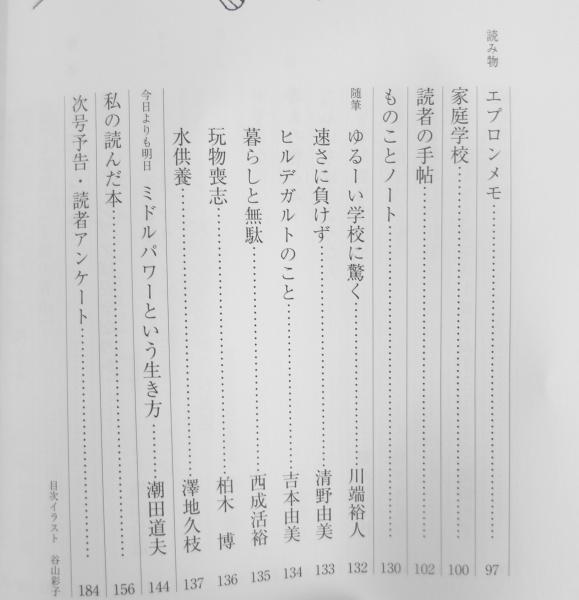 読み物
エプロンメモ……………………………97
家庭学校……………………………100
読者の手帖……………………………102
ものことノート……………………………130
随筆 ゆるーい学校に驚く……………………川端裕人 132
速さに負けず……………………清野由美 133
ヒルデガルトのこと……………………吉本由美 134
暮らしと無駄……………………西成活裕 135
玩物喪志……………………柏木 博 136
水供養……………………澤地久枝 137
今日よりも明日 ミドルパワーという生き方………潮田道夫 144
私の読んだ本……………………………156
次号予告・読者アンケート……………………………184
目次イラスト 谷山彩子